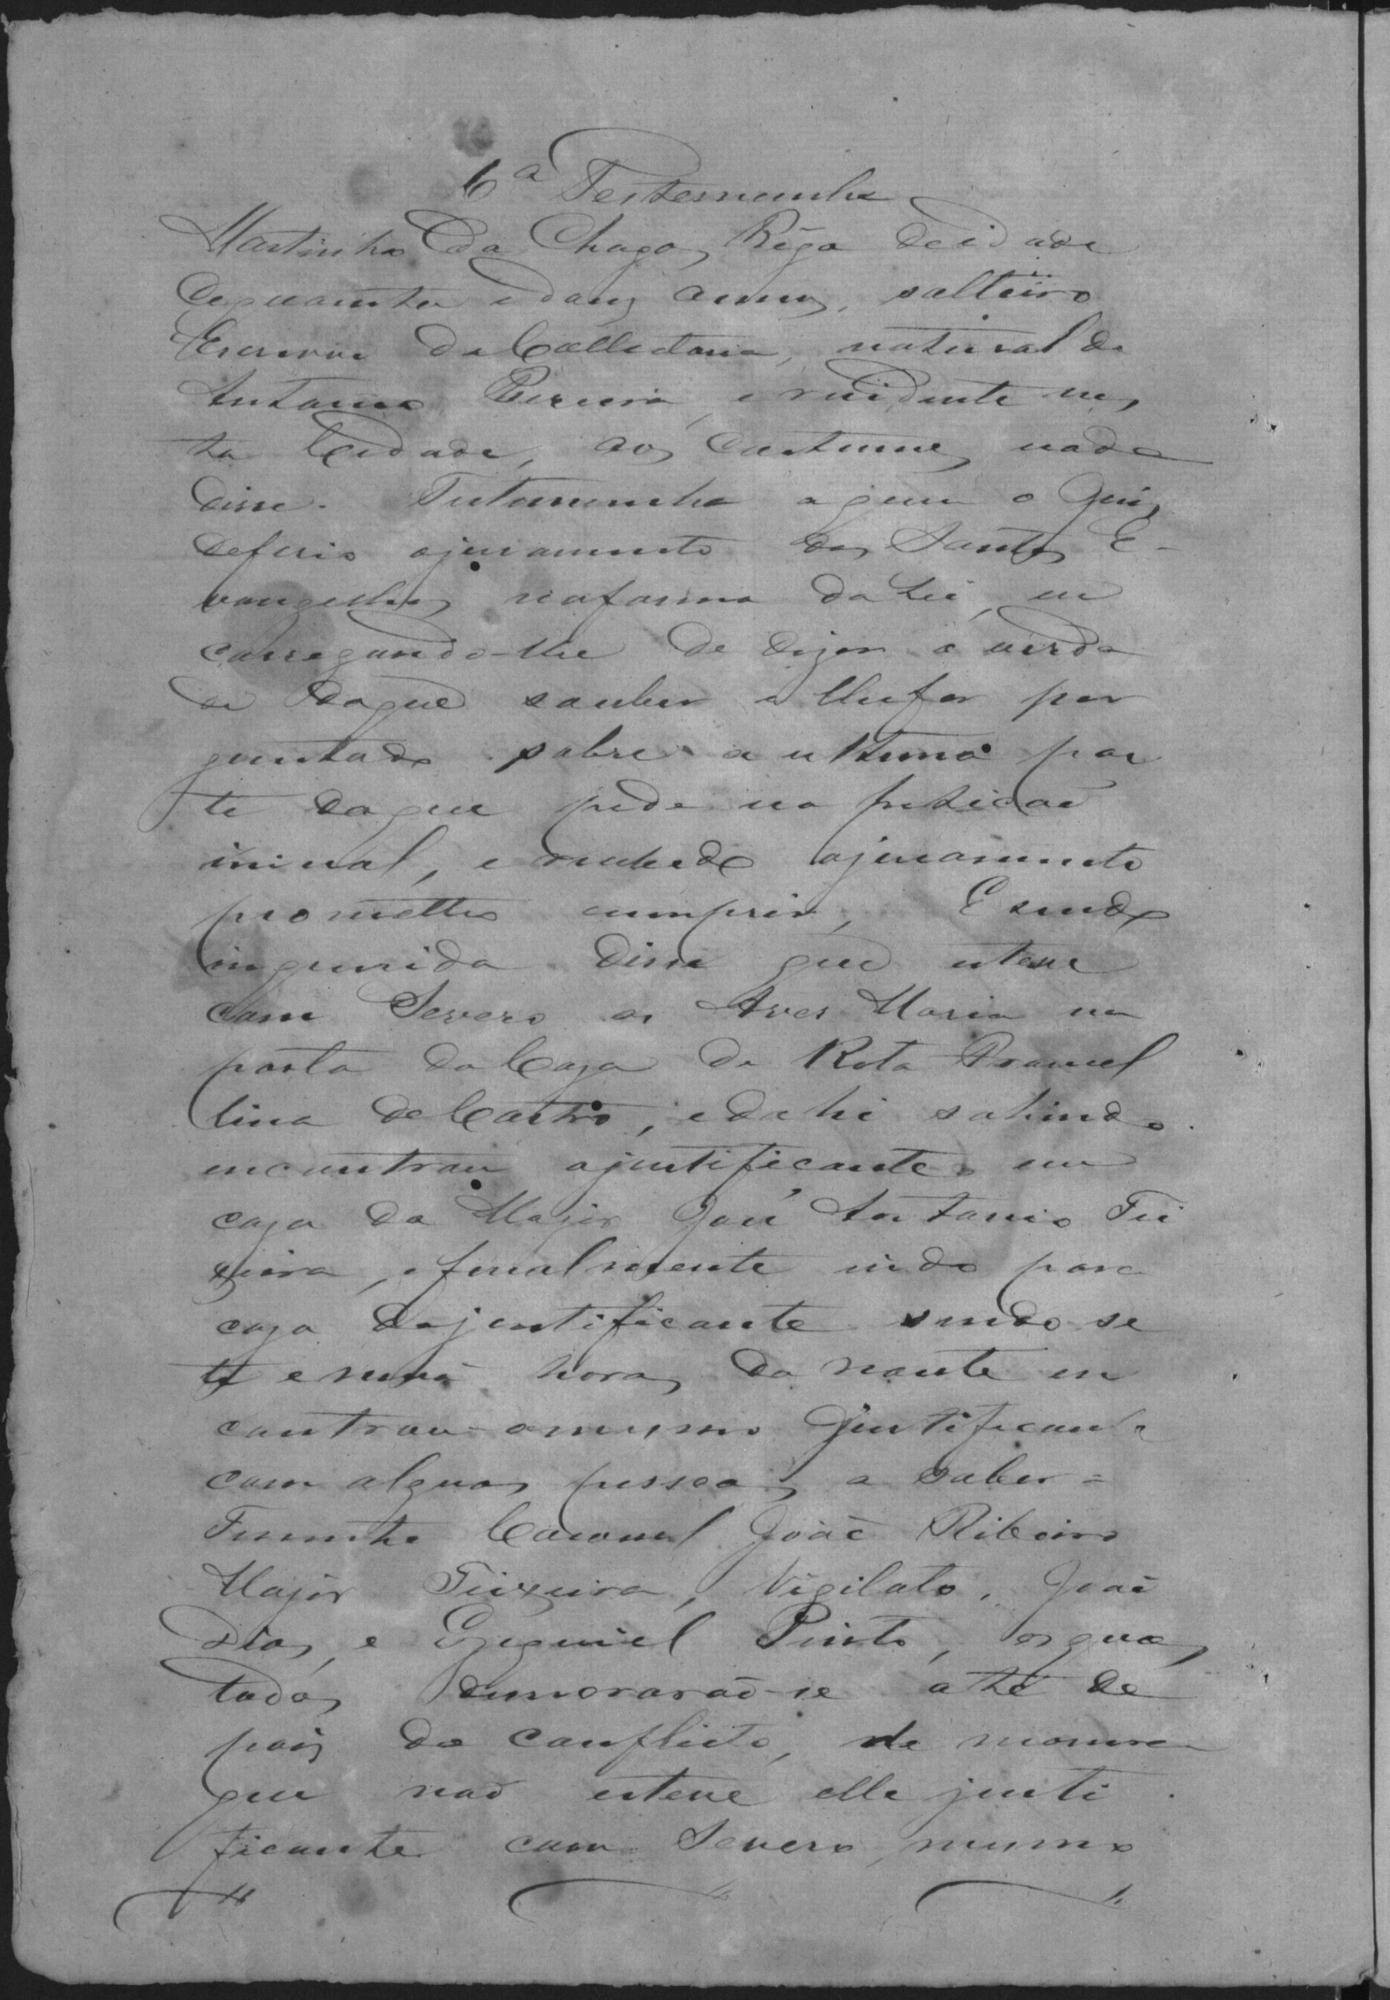 6ª Testemunha
Martinho da Chagas Rêgo de idade
de quarenta e dous annos, solteiro
Escrivão da Collectoria, natural de
Antonio Pereira, e residente nes
ta Cidade, aos costumes nada
disse. Testemunha a quem o Juiz
deferio o juramento dos Santos E-
vangelhos na forma da Lei, en
carregando-lhe de dizer a verda
de do que souber e lhe for per
guntado sobre a ultima par
te do que pede na petição
inicial, e recebido o juramento
prometteu cumprir, E sendo
inquirida disse que esteve
com Severo as Aves Maria na
porta da Caza de Rita
lina de Castro, e dahi sahindo
encontrou o justificante em
caza do Major José Antonio Tei
xeira, e finalmente indo para
caza do justificante sendo se
te e meia horas da noute en
controu o mesmo Justificante
com algumas pessoas a saber =
Tenente Coronel João Ribeiro
Major Teixeira, Vigilato, João
Dias, e Ezequiel Pinto, os quaes
todos demorarão-se athé de
pois do conflicto, de maneira
que não esteve elle justi
ficante com Severo, mesmo